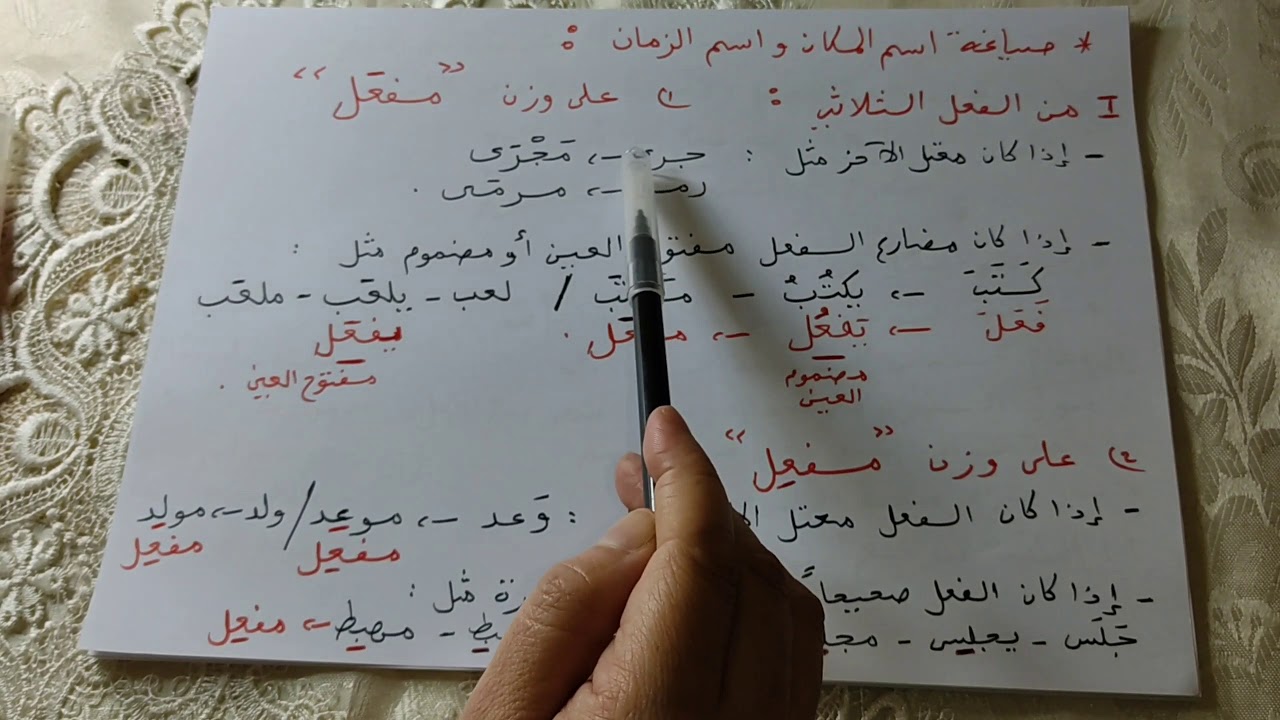 * صياغة اسم المكان و اسم الزمان :
I من الفعل الثلاثي : 1) على وزن "مفعَل"
- إذا كان معتل الآخر مثل : جرى → مَجْرَى
→ مرمَى .
- إذا كان مضارع الفعل العين أو مضموم مثل :
كَتَبَ → يكتُبُ - / لعب - يلعَب - ملعَب
فَعَلَ → يَفعُل → . يفعَل
مضموم العين مفتوح العين .
2) على وزن "مفعِل"
- إذا كان الفعل معتل : وَعد → موعِد / ولد → مولِد
مفعِل مفعِل
- إذا كان الفعل صحيحاً مثل :
جَلَس - يجلِس - - مهبِط → مفعِل